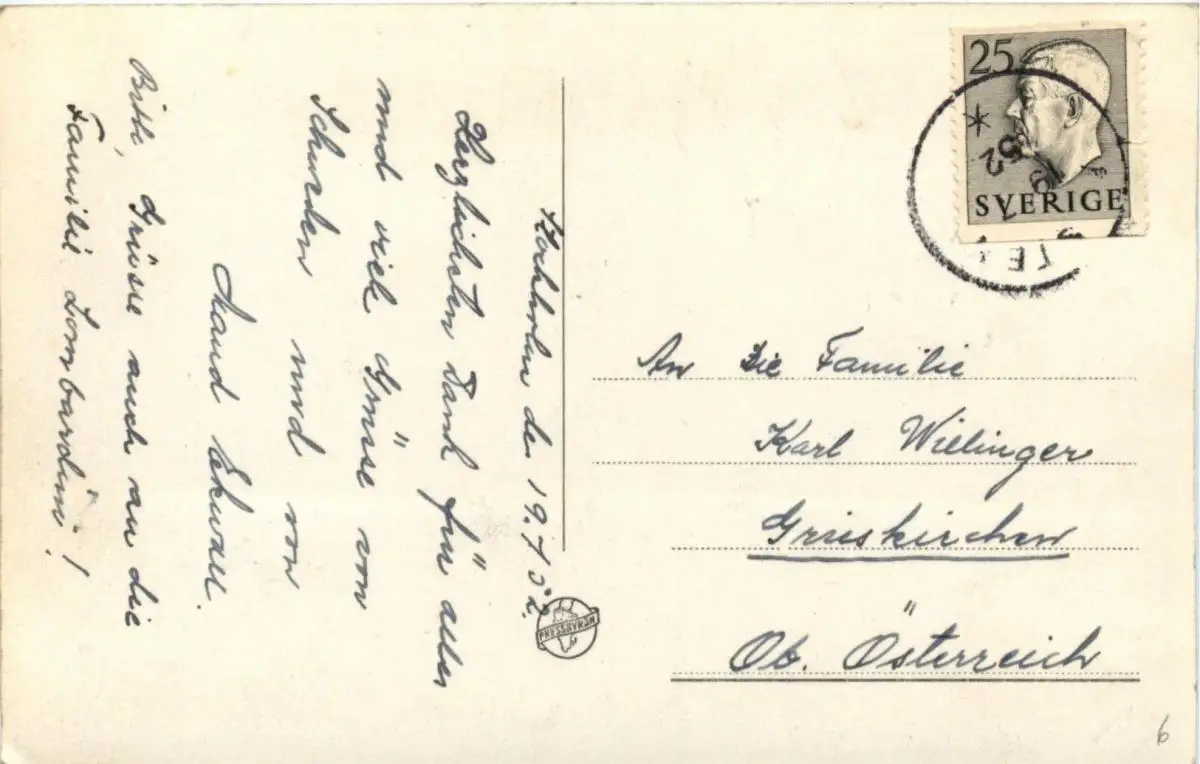 den 19.7 52.
Herzlichsten Dank für alles
und viele Grüsse von
Schweden und von
Maud Ekwall.
Bitte, Grüsse auch an die
Familie Lombardini!
25
SVERIGE
52
PRESSBYRÅN
An Die Familie
Karl Willinger
Grieskirchen
Ob. Österreich
6